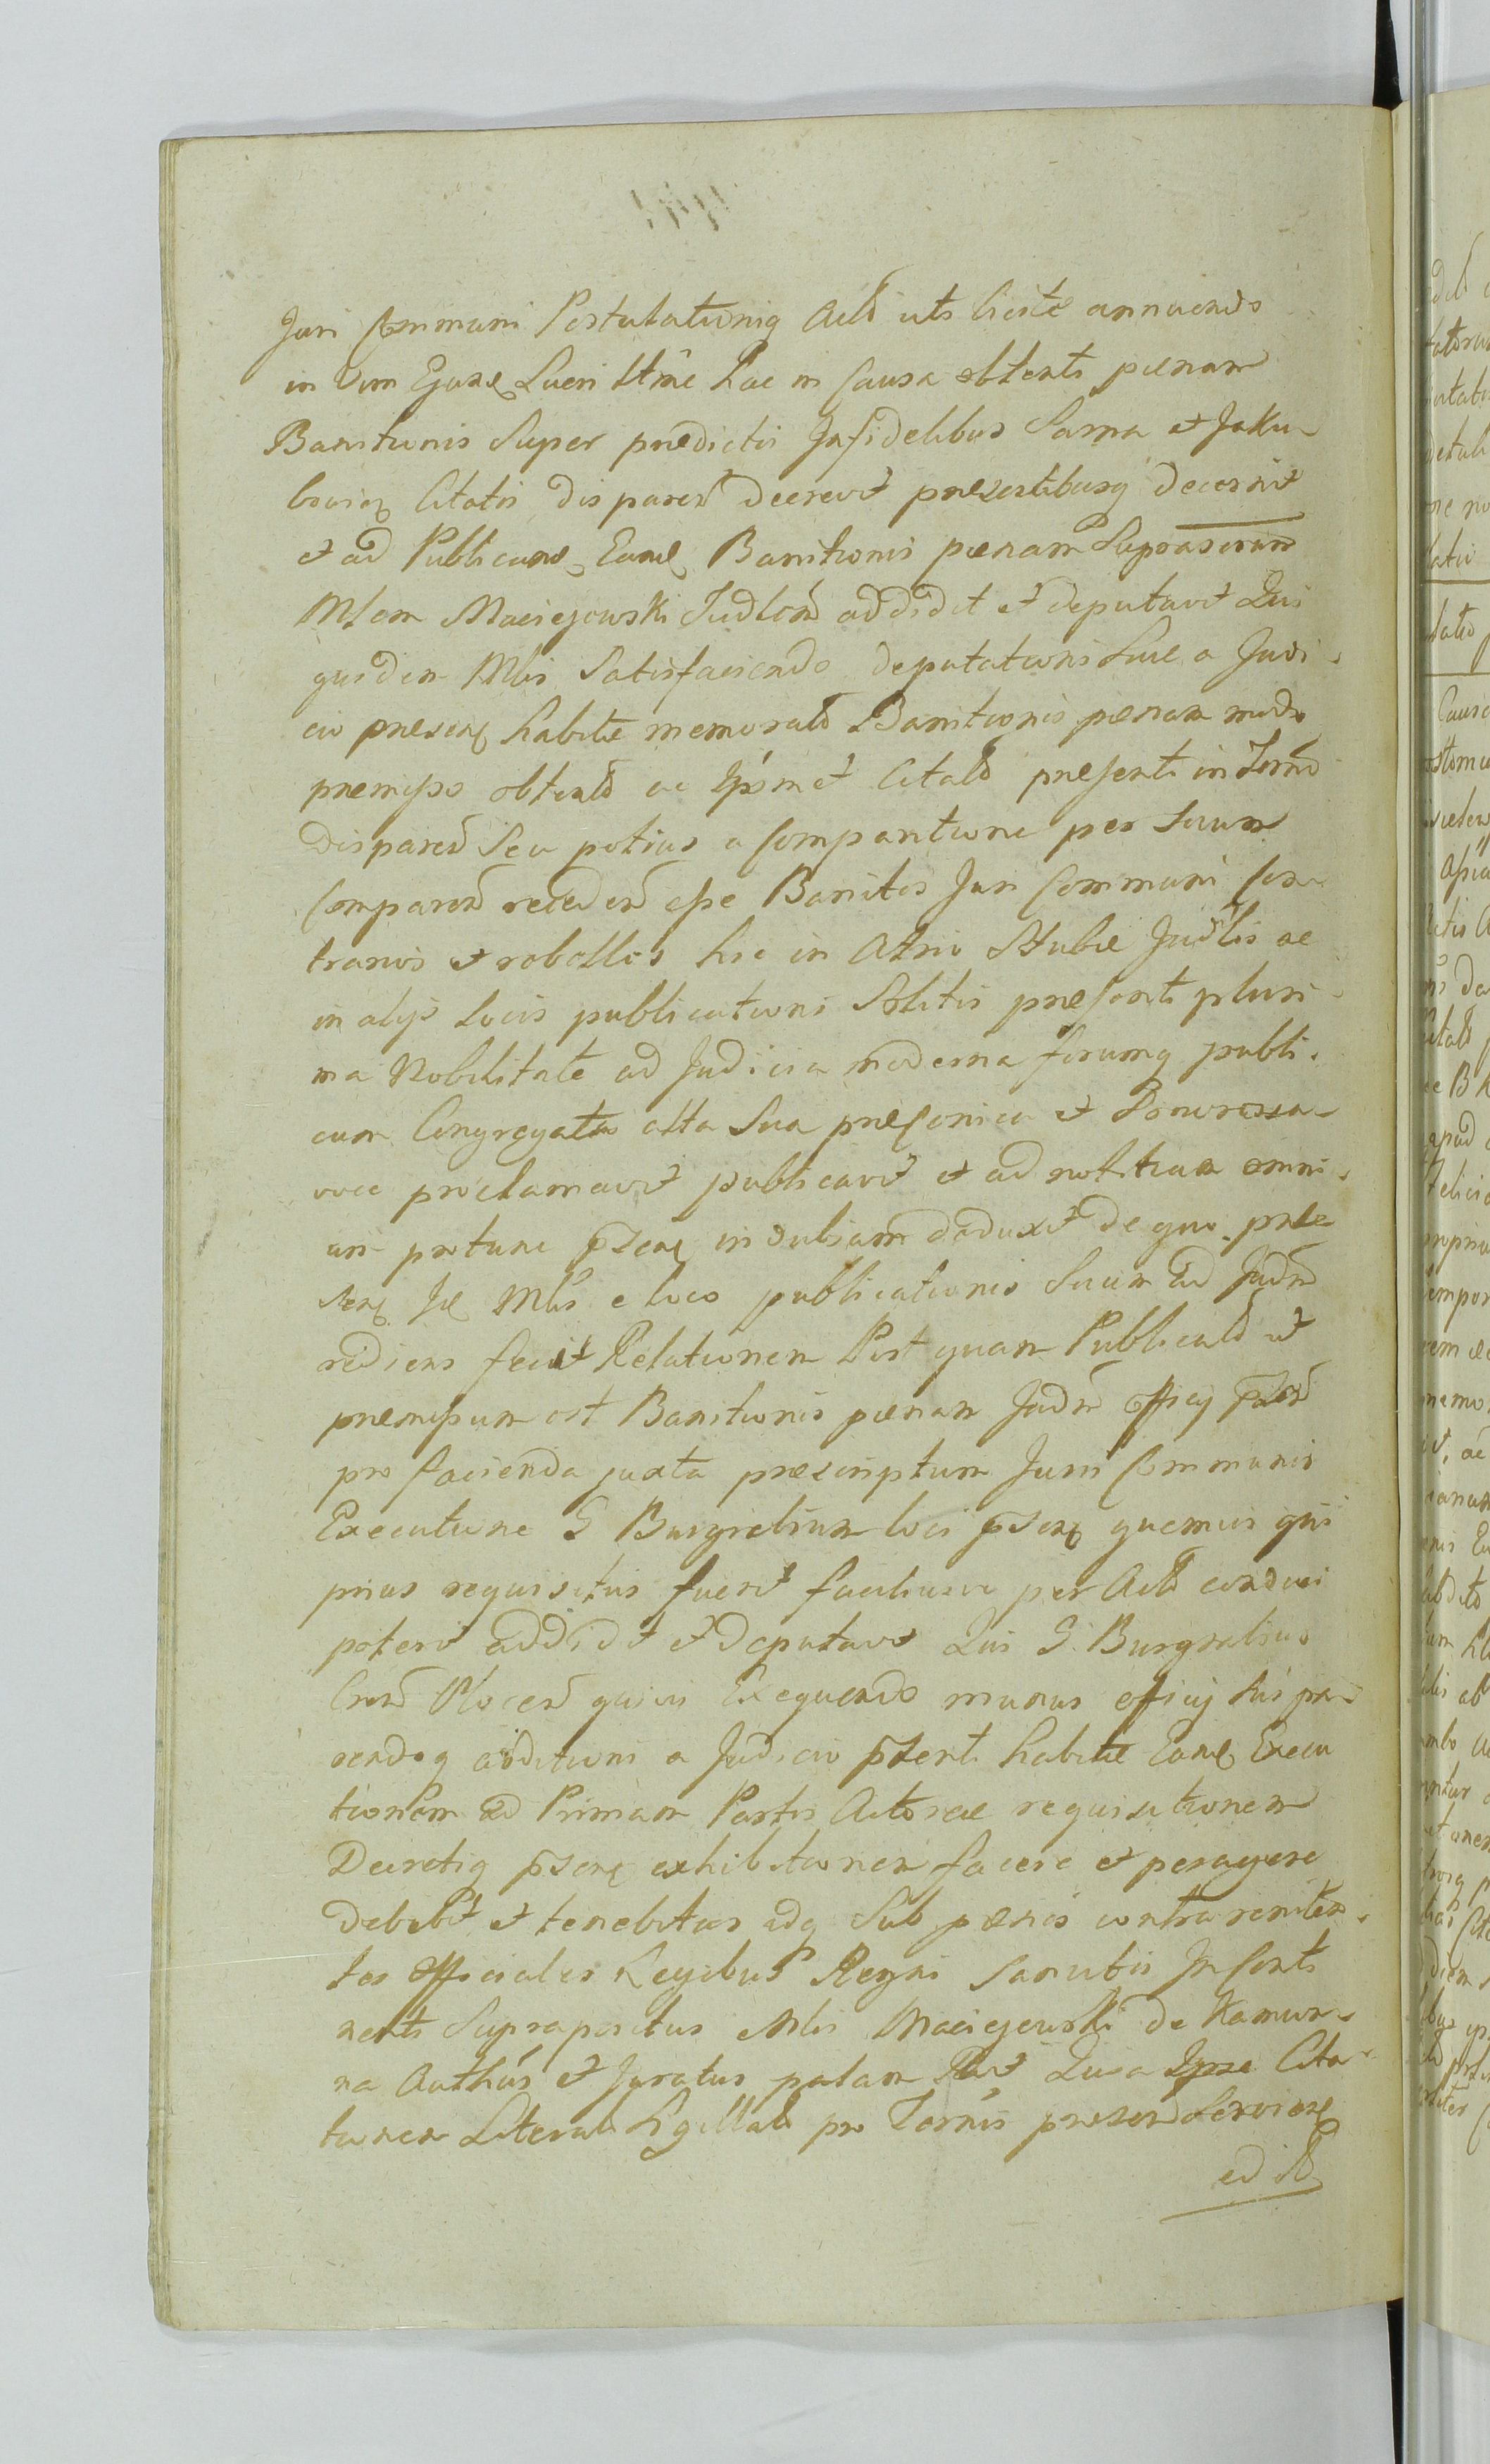 Juri Communi Postulationiq Actô uts licite annuendo
in Vim Ejusdę Lucri ttme hac in Causa obtenti pænam
Banitionis Super prædictis Infidelibus Sarna et Jaku-
bowicz Citatis disparen decrevit præsentibusq decernit
et ad Publicand Eamdę Banitionis pænam Suprascriptm
Mlem Maciejowski Judlem addidit et deputavit Qui
quidem Mlis Satisfaciendo deputationi Suæ a Judi-
cio præsenę habitæ memorată Banitionis pænam modo
præmisso obtentă ac Ipsmet Citatô præsenti in Termo
disparen Seu potius a Comparitione per Suum
Comparen recedend esse Banitos Juri Communi Con-
trarios et robelles hic in Atrio Stubæ Judlis ac
in alijs Locis publicationi Solitis præsenti pluri-
ma Nobilitate ad Judicia moderna forumq publi-
cum Congregata alta Sua præconica et Sonorosa
voce proclamavit publicavit et ad notitiam omni-
um protunc p̄senę indubiam deduxit de quo præ
senę Jd Mlis e loco publicationis Suum ad Judm
rediens fecit Relationem Post quam Publicată ut
præmissum est Banitionis pænam Judm officij p̄sen
pro facienda juxta præscriptum Juri Communis
Executione G Burgrabium loci p̄senę quemvis qui
prius requisitus fuerit faciliusve per Actô conduci
poterit addidit et deputavit Qui G. Burgrabius
Cren Plocen quivis Exequendo munus officij sui pa-
rendoq additioni a Judicio p̄senti habitæ Eamdę Execu
tionem ad Primam Partis Actoreæ requisitionem
Decretiq p̄senę exhibitionem facere et peragere
debebit et tenebitur idq Sub pænis contra reniten-
tes officiales Legibus Regni Sancitis In Conti
nenti Suprapositus Mlis Maciejewski de Kamion-
na Authus et Juratus palam Rlvit Quia Ipse Cita-
tionem Literală Sgillată pro Termis præsen Servienę
ed